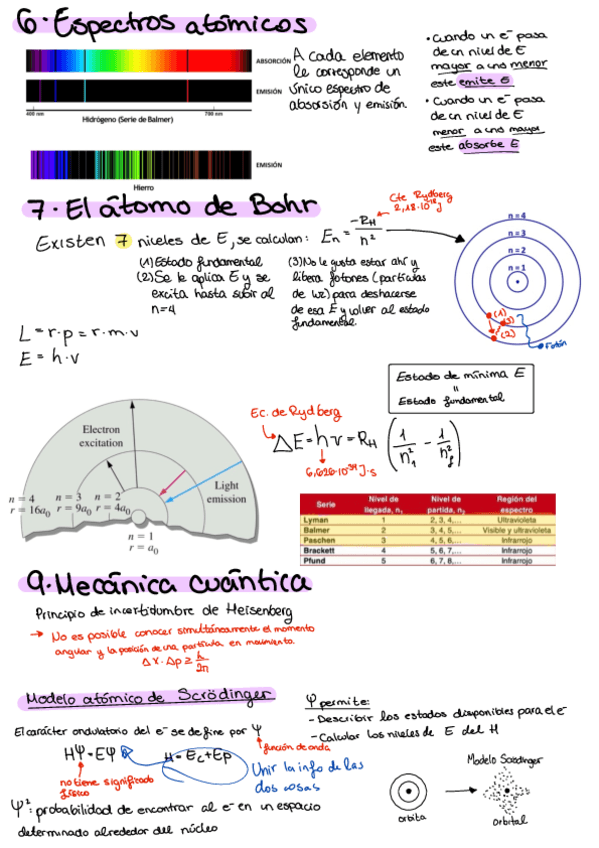 6. Espectros atómicos
ABSORCIÓN
EMISIÓN
400 nm
700 nm
Hidrógeno (Serie de Balmer)
EMISIÓN
Hierro
A cada elemento
le corresponde un
único espectro de
absorsión y emisión.
• Cuando un e⁻ pasa
de un nivel de E
mayor a uno menor
este emite E
• Cuando un e⁻ pasa
de un nivel de E
menor a uno mayor
este absorbe E
7. El átomo de Bohr
Existen 7 niveles de E, se calculan: En = -RH / n²
Cte Rydberg
2,18·10⁻¹⁸J
(1) Estado fundamental
(2) Se le aplica E y se
excita hasta subir al
n=4
(3) No le gusta estar ahí y
libera fotones (partículas
de luz) para deshacerse
de esa E y volver al estado
fundamental.
n=4
n=3
n=2
n=1
(1)
(3)
(2)
Fotón
L = r·p = r·m·v
E = h·v
Estado de mínima E
"
Estado fundamental
Electron
excitation
Light
emission
n = 4 n = 3 n = 2
r = 16a₀ r = 9a₀ r = 4a₀
n = 1
r = a₀
Ec. de Rydberg
ΔE = hν = RH (1/n²₁ - 1/n²f)
6,626·10⁻³⁴ J·s
Serie Nivel de llegada, n₁ Nivel de partida, n₂ Región del espectro
Lyman 1 2, 3, 4,... Ultravioleta
Balmer 2 3, 4, 5,... Visible y ultravioleta
Paschen 3 4, 5, 6,... Infrarrojo
Brackett 4 5, 6, 7,... Infrarrojo
Pfund 5 6, 7, 8,... Infrarrojo
9. Mecánica cuántica
Principio de incertidumbre de Heisenberg
→ No es posible conocer simultáneamente el momento
angular y la posición de una partícula en movimiento.
Δx · Δp ≥ h/2π
Modelo atómico de Scrödinger
El carácter ondulatorio del e⁻ se define por Ψ
función de onda
HΨ = EΨ
H = Ec + Ep
no tiene significado
físico
Unir la info de las
dos cosas
Ψ²: probabilidad de encontrar al e⁻ en un espacio
determinado alrededor del núcleo
Ψ permite:
- Describir los estados disponibles para el e⁻
- Calcular los niveles de E del H
Modelo Scrödinger
orbita
orbital